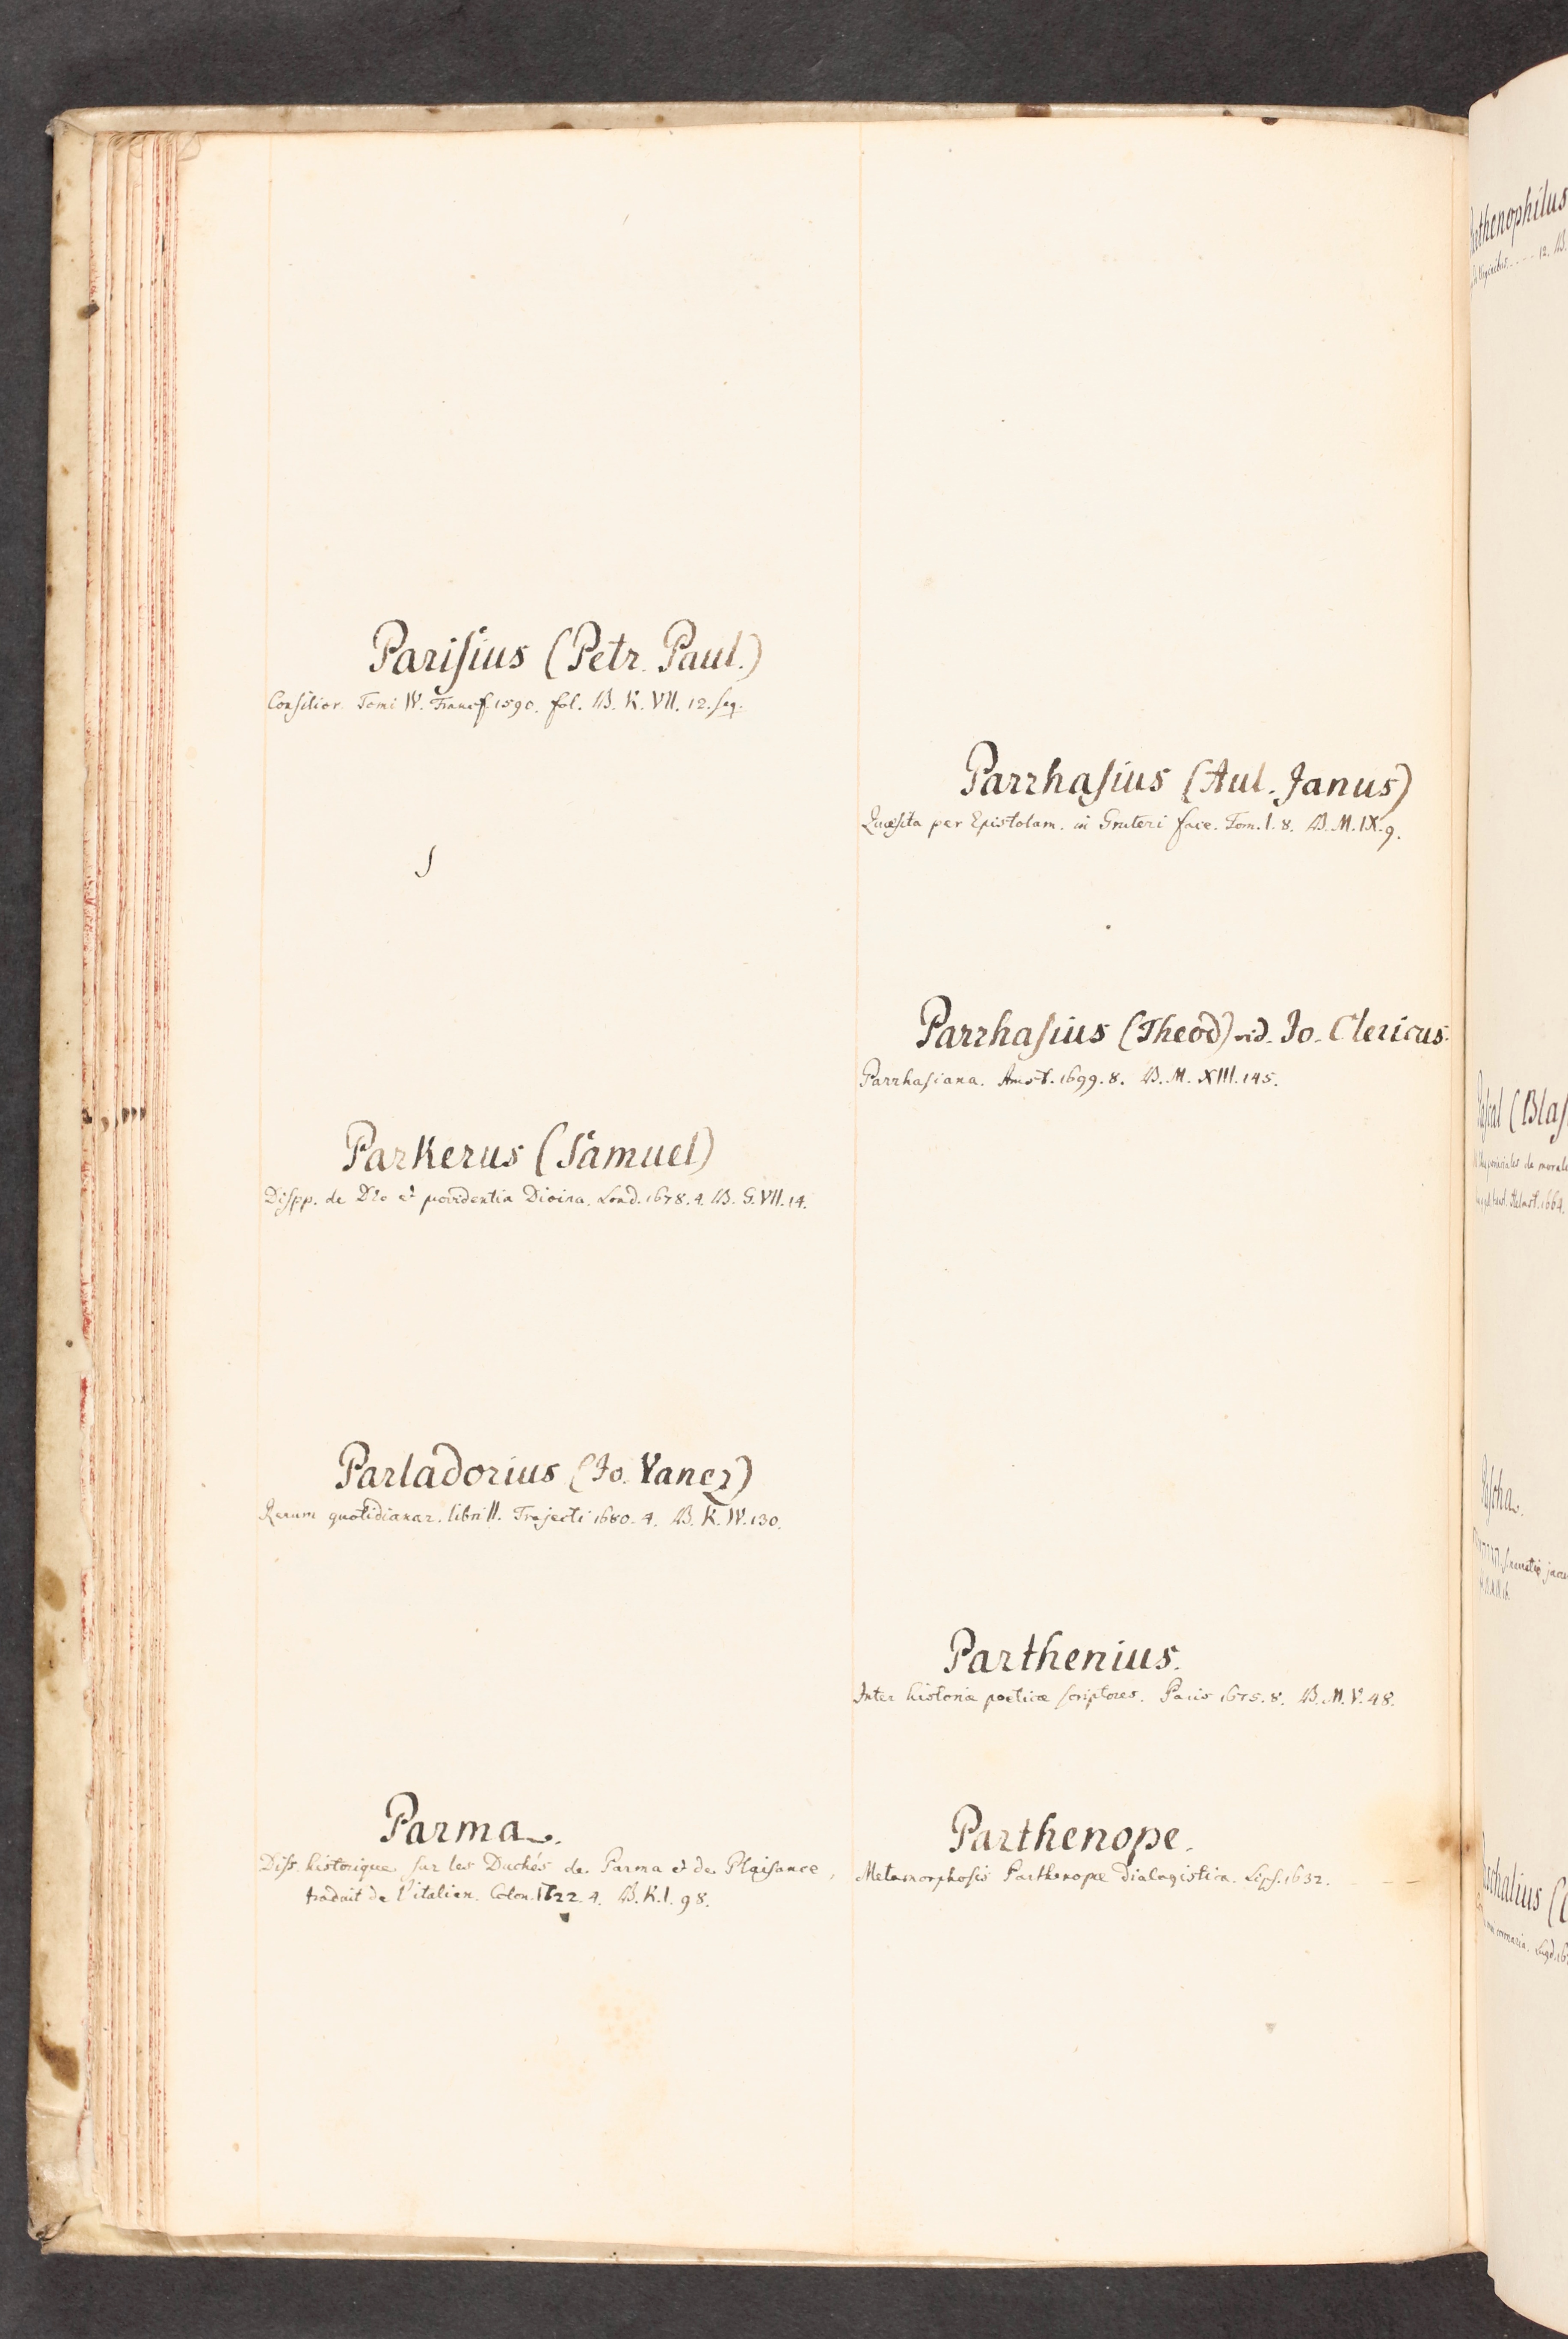 Parisius (Petr. Paul.)
Consilior. Tomi IV. Francf. 1590. fol. B. K. VII. 12. seq.
Parkerus (Samuel)
Dispp. de Deo et providentia Divina. Lond. 1678. 4. B. G. VII. 14.
Parladorius (Jo. Yanez)
Rerum quotidianar. libri II. Trajecti 1680. 4. B. K. IV. 130.
Parma.
Diss. historique sur les Duchés de Parma et de Plaisance,
traduit de l'italien. Colon. 1722. 4. B. K. I. 98.
Parrhasius (Aul. Janus)
Quæsita per Epistolam. in Gruteri face. Tom. I. 8. B. M. IX. 9.
Parrhasius (Theod) vid. Jo. Clericus.
Parrhasiana. Amst. 1699. 8. B. M. XIII. 145.
Parthenius.
Inter historiæ poeticæ scriptores. Paris 1675. 8. B. M. V. 48.
Parthenope.
Metamorphosis Parthenope dialogistica. Lips. 1632. - - -
thenophilus
12. B.
(Blas
de morale
Helmst. 1664.
scha.
schalius (
coronaria. Lugd. 16